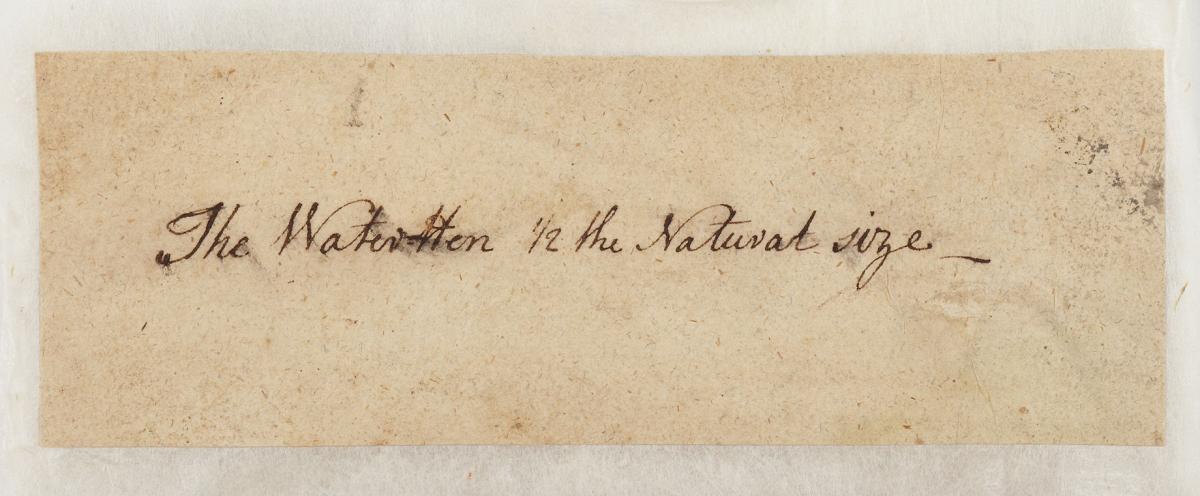 The Water-Hen 1/2 the Natural size_